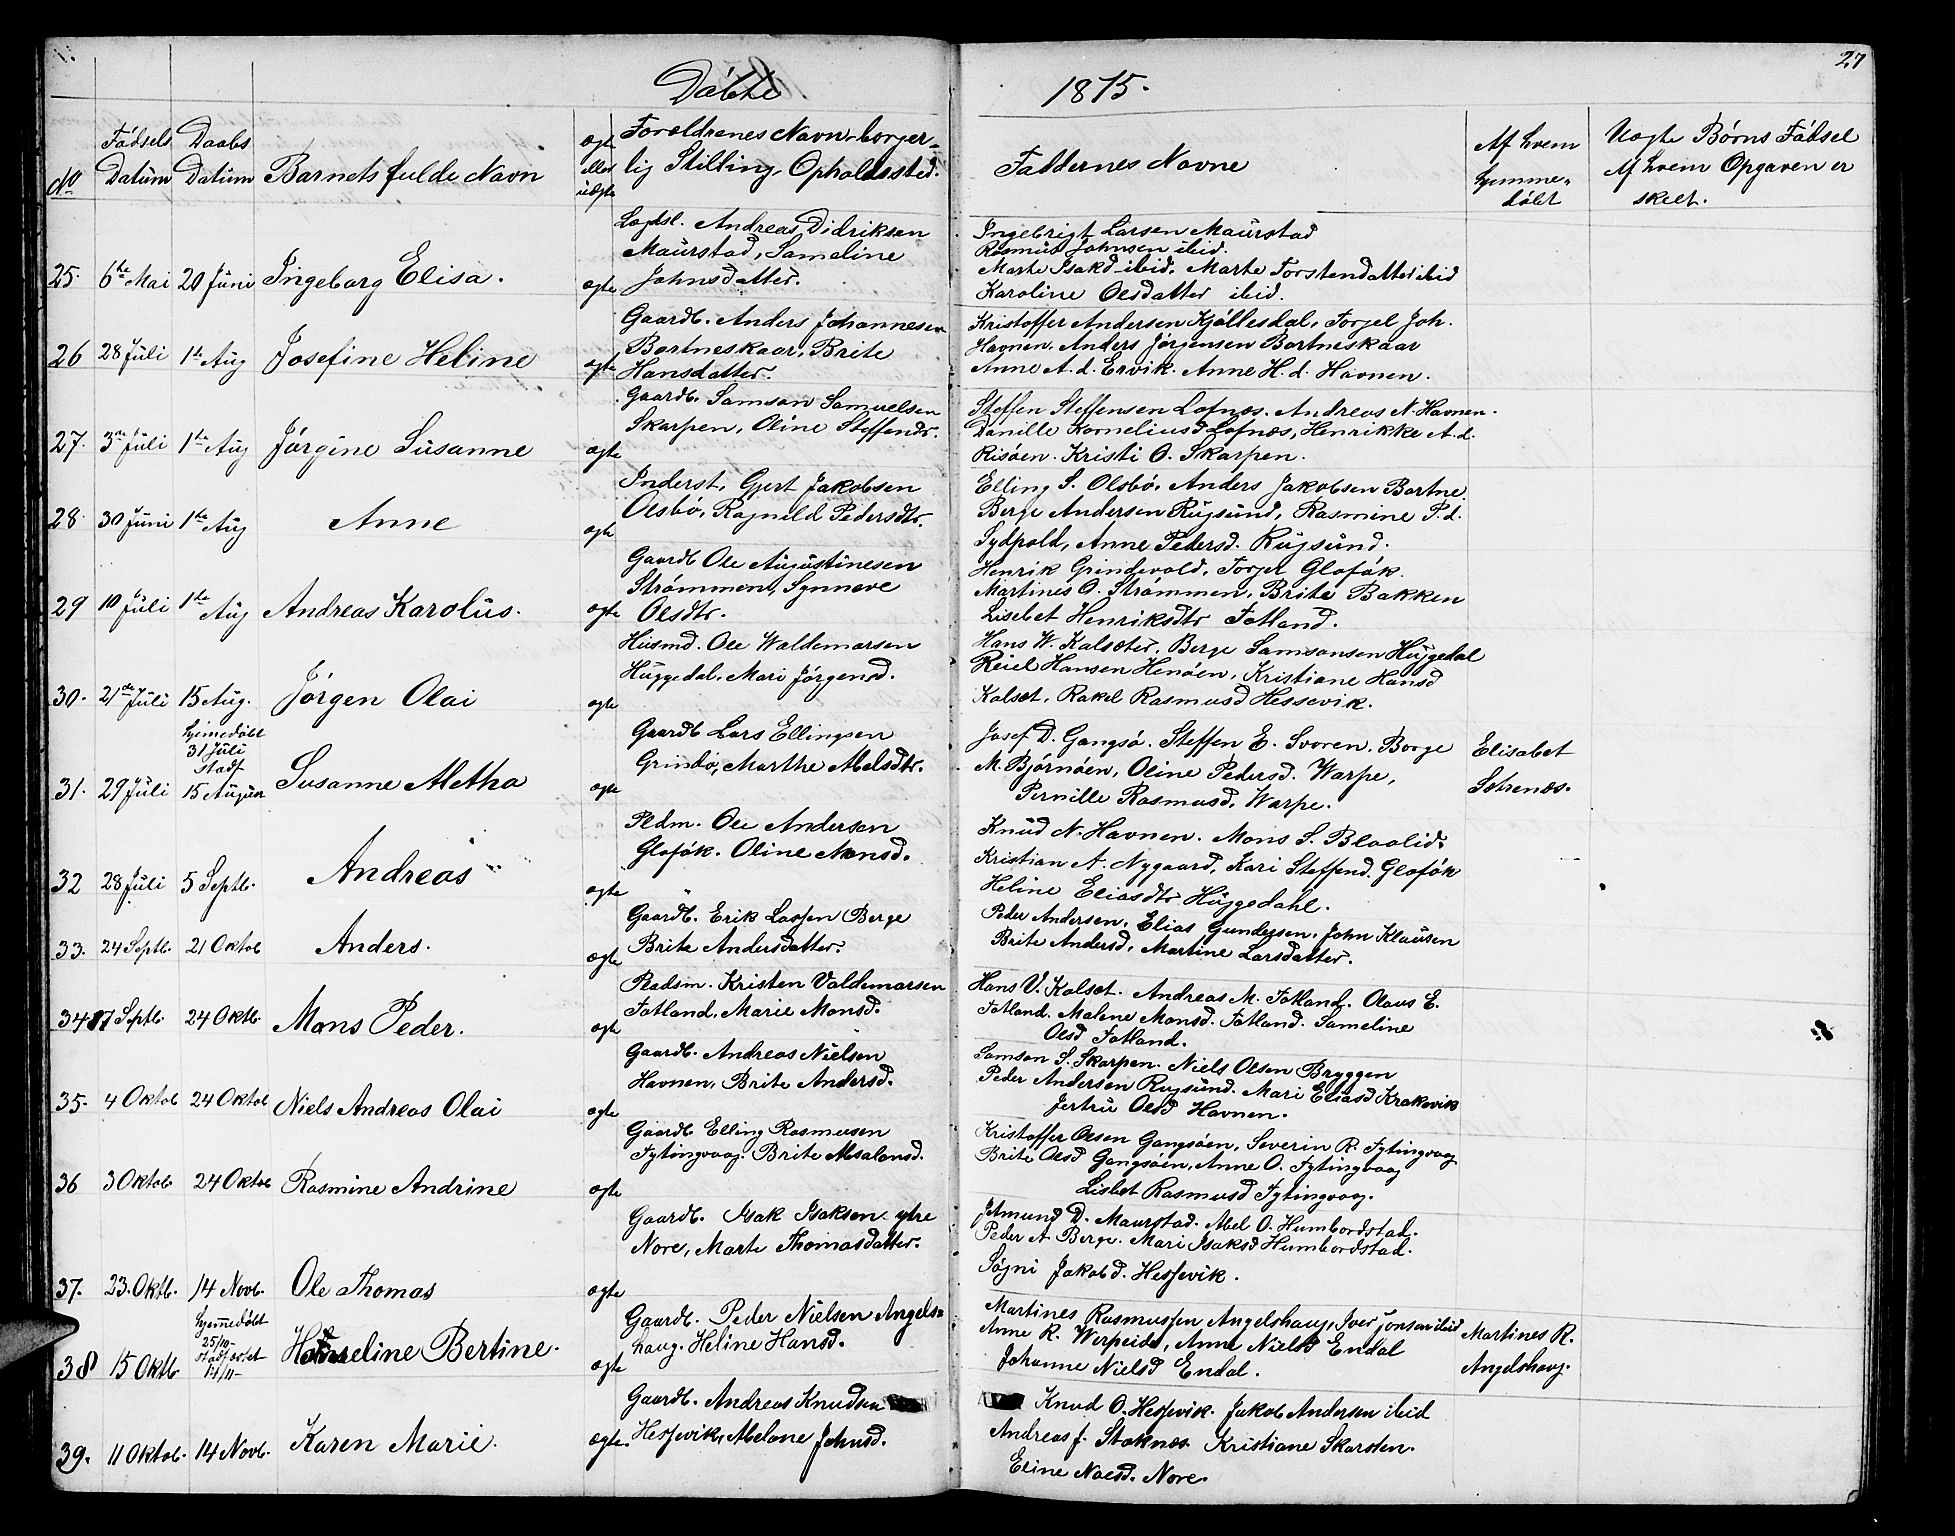 27
Döbte 1875.
No
Födsels Datum
Daabs Datum
Barnets fulde Navn
ægte eller uægte
Forældrenes Navn, borger-
lig Stilling, Opholdssted.
Faddernes Navne
Af hvem hjemme-
döbt
Uægte Börns Födsel
Af hvem Opgaven er
skeet.
25. 6te Mai 20 Juni Ingeborg Elisa. ægte
Lægdsl. Andreas Didriksen
Maurstad, Sameline
Johnsdatter.
Ingebrigt Larsen Maurstad
Rasmus Johnsen ibid.
Marte Isakd ibid. Marte Torstendatter ibid
Karoline Olsdatter ibid.
26 28 Juli 1te Aug Josefine Heline ægte
Gaardb. Anders Johannesen
Bortneskaar, Brite
Hansdatter.
Kristoffer Andersen Kjöllesdal, Torjel Joh.
Havnen. Anders Jörgensen Bortneskaar
Anne A. d. Ervik. Anne H. d. Havnen.
27. 3die Juli 1te Aug Jörgine Susanne ægte
Gaardb. Samson Samuelsen
Skarpen, Oline Steffendr.
Steffen Steffensen Lofnæs. Andreas N. Havnen.
Danille Korneliusd Lofnæs, Henrikke A. d.
Risöen. Kristi O. Skarpen.
28. 30 Juni 1te Aug Anne ægte
Inderst, Gjert Jakobsen
Olsbö, Ragnild Pedersdtr.
Elling S. Olsbö. Anders Jakobsen Bortne
Berge Andersen Rugsund, Rasmine P. d.
Sydpold, Anne Pedersd. Rugsund.
29 10 Juli 1te Aug Andreas Karolus. ægte
Gaardb Ole Augustinesen
Strömmen, Synneve
Olsdtr.
Henrik Grindevold. Torjer Glofök.
Martines O. Strömmen, Brite Bakken
Lisebet Henriksdtr Totland.
30. 21de Juli 15 Aug. Jörgen Olai ægte
Husmd. Ole Waldemarsen
Huggedal, Mari Jörgensd.
Hans W. Kalsæter. Berge Samsonsen Huggedal
Reiel Hansen Henöen, Kristiane Hansd
Kalsæt, Rakel Rasmusd Hessevik.
31. 29 Juli hjemedöbt
31 Juli
stadf
15 August Susanne Aletha ægte
Gaardb Lars Ellingsen
Grindö, Marthe Abelsdtr.
Josef D. Gangsö. Steffen E. Svoren. Borge
M. Björnöen, Oline Pedersd. Warpe,
Pernille Rasmusd. Warpe.
Elisabet
Sætrenæs.
32 28 Juli 5 Septb. Andreas ægte
Pldm. Ole Andersen
Glofök. Oline Monsd.
Knud N. Havnen. Mons S. Blaalid.
Kristian A. Nygaard, Kari Steffend. Glofök
Heline Eliasdtr Huggedahl.
33. 24 Septb. 21 Oktob Anders. ægte
Gaardb. Erik Lassen Berge
Brite Andersdatter.
Peder Andersen, Elias Gundersen, John Klausen
Brite Andersd, Martine Larsdatter.
34 17 Septb. 24 Oktb. Mons Peder. ægte
Pladsm. Kristen Valdemarsen
Totland, Marie Monsd.
Hans V. Kalsæt. Andreas M. Totland. Olaus E.
Totland. Malene Monsd. Totland. Sameline
Olsd Totland.
35. 4 Oktob 24 Oktob Niels Andreas Olai ægte
Gaardb. Andreas Nielsen
Havnen, Brite Andersd.
Samson S. Skarpen. Niels Olsen Bryggen
Peder Andersen Rugsund. Mari Eliasd Krakevik
Jertru Olsd Havnen.
36 3 Oktob 24 Oktob Rasmine Andrine ægte
Gaardb Elling Rasmusen
Fytingvaag. Brite Absalonsd.
Kristoffer Olsen Gangsöen, Severin R. Fytingvaag
Brite Olsd Gangsöen, Anne O. Fytingvaag
Lisbet Rasmusd Fytingvaag.
37. 23. Oktb. 14 Novb. Ole Thomas ægte
Gaardb. Isak Isaksen ytre
Nore, Marte Thomasdatter.
Jetmund D. Maurstad. Abel O. Humbordstad.
Peder A. Berge. Mari Isaksd Humbordstad.
Sögni Jakobd. Hessevik.
38 15 Oktb hjemedöbt
25/10-
stadfæstet
14/11- Hanseline Bertine. ægte
Gaardb. Peder Nielsen Angels-
haug. Heline Hansd.
Martines Rasmussen Angelshaug, Iver Jonsen ibid
Anne R. Werpeide, Anne Nielsd Endal
Johanne Nielsd Endal.
Martines R.
Angelshaug.
39. 11 Oktob. 14 Novb. Karen Marie. ægte.
Gaardb. Andreas Knudsen
Hessevik, Abelone Johnsd.
Knud O. Hessevik. Jakob Andersen ibid
Andreas J. Stoknæs. Kristiane Skarsten.
Eline Nilsd. Nore.